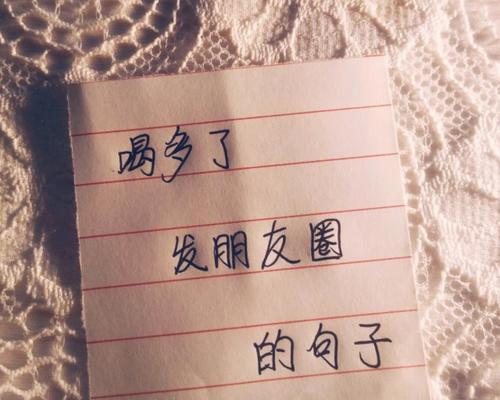 喝多了
发朋友圈
的句子